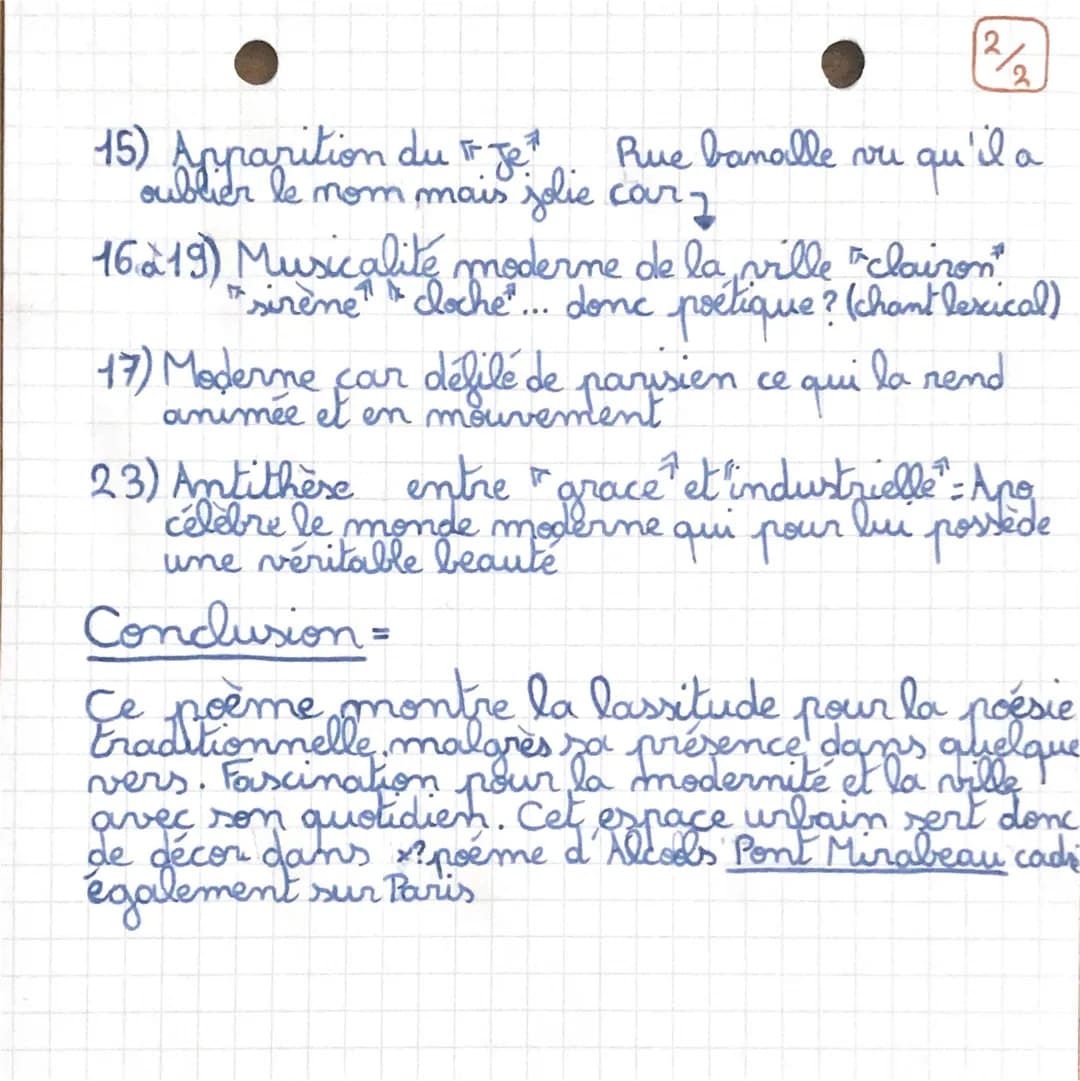 2/2
15) Apparition du "Je" Rue banalle vu qu'il a
oublier le nom mais jolie car
16 à 19) Musicalité moderne de la ville "clairon"
"sirène" "cloche"... donc poétique ? (chant lexical)
17) Moderne car défilé de parisien ce qui la rend
animée et en mouvement
23) Antithèse entre "grace" et "industrielle" = Apo
célèbre le monde moderne qui pour lui possède
une véritable beauté
Conclusion =
Ce poème montre la lassitude pour la poésie
traditionnelle malgrès sa présence dans quelque
vers. Fascination pour la modernité et la ville
avec son quotidien. Cet espace urbain sert donc
de décor dans x? poème d'Alcools Pont Mirabeau cadr
également sur Paris